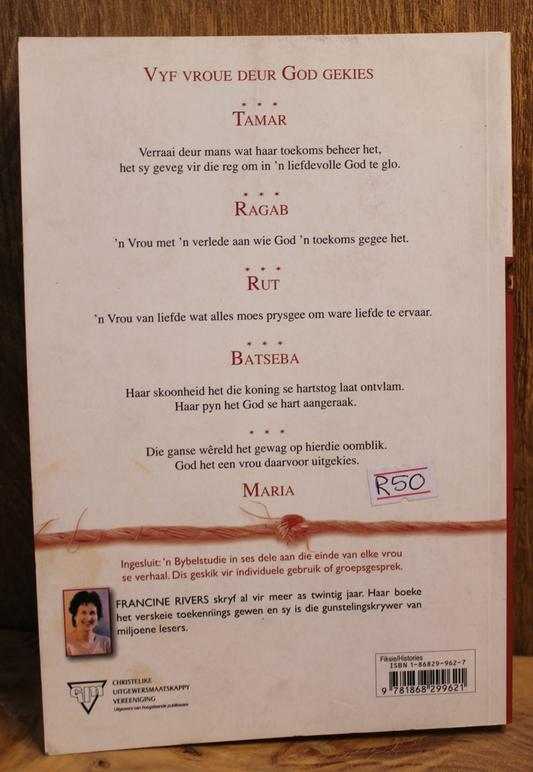 VYF VROUE DEUR GOD GEKIES
* * *
TAMAR
Verraai deur mans wat haar toekoms beheer het,
het sy geveg vir die reg om in 'n liefdevolle God te glo.
* * *
RAGAB
'n Vrou met 'n verlede aan wie God 'n toekoms gegee het.
* * *
RUT
'n Vrou van liefde wat alles moes prysgee om ware liefde te ervaar.
* * *
BATSEBA
Haar skoonheid het die koning se hartstog laat ontvlam.
Haar pyn het God se hart aangeraak.
* * *
Die ganse wêreld het gewag op hierdie oomblik.
God het een vrou daarvoor uitgekies.
MARIA
R50
Ingesluit: 'n Bybelstudie in ses dele aan die einde van elke vrou
se verhaal. Dis geskik vir individuele gebruik of groepsgesprek.
FRANCINE RIVERS skryf al vir meer as twintig jaar. Haar boeke
het verskeie toekenriings gewen en sy is die gunstelingskrywer van
miljoene lesers.
CHRISTELIKE
UITGEWERSMAATSKAPPY
VERENIGING
Uitgewers van hoogstaande publikasies
Fiksie/Histories
ISBN 1-86829-962-7
9 781868 299621